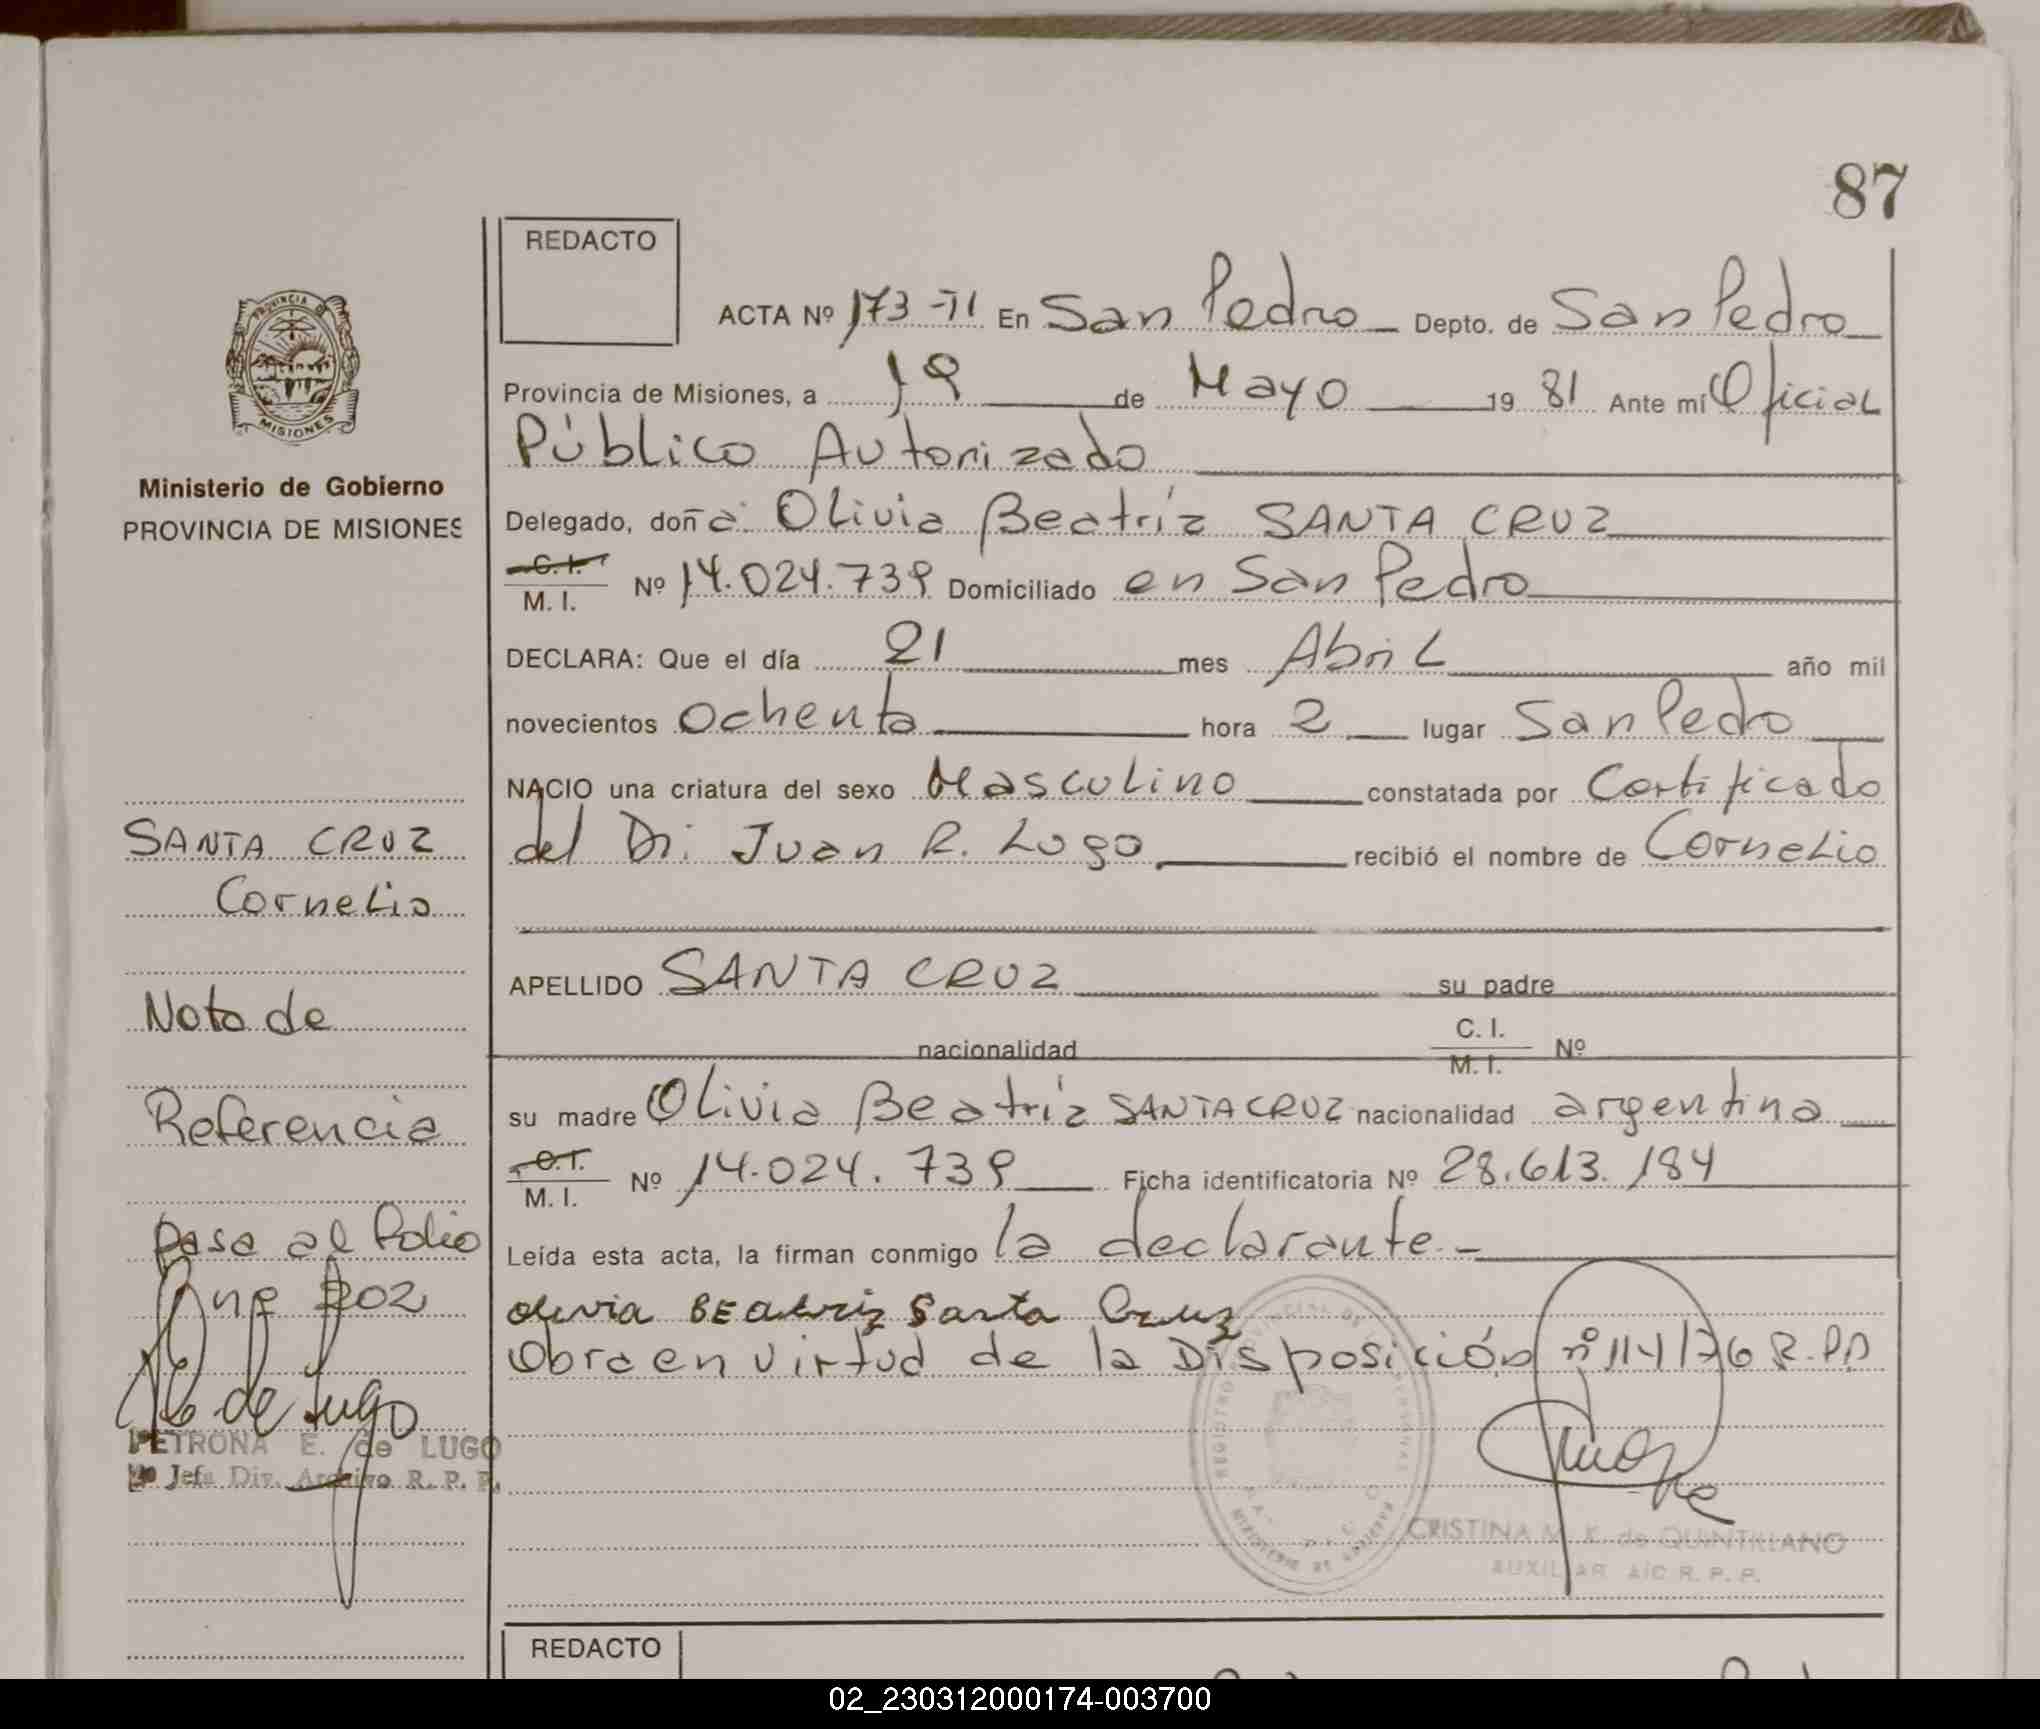 87
REDACTO
ACTA Nº 173-II En San Pedro Depto. de San Pedro
Provincia de Misiones, a 19 de Mayo 19 81 Ante mí Oficial
Público Autorizado
Delegado, doña Olivia Beatríz SANTA CRUZ
C. I.
M. I. Nº 14.024.739 Domiciliado en San Pedro
DECLARA: Que el día 21 mes Abril año mil
novecientos Ochenta hora 2 lugar San Pedro
NACIO una criatura del sexo Masculino constatada por Certificado
del Dr. Juan R. Lugo recibió el nombre de Cornelio
APELLIDO SANTA CRUZ su padre
nacionalidad C. I.
M. I. Nº
su madre Olivia Beatríz SANTA CRUZ nacionalidad argentina
C. I.
M. I. Nº 14.024.739 Ficha identificatoria Nº 28.613.184
Leída esta acta, la firman conmigo la declarante.-
Olivia BEAtriz Santa Cruz
Obra en virtud de la Disposición nº 114/76 R.P.P
CRISTINA M. K. de QUINTILLANO
AUXILIAR A/C R. P. P.
PROVINCIA DE
MISIONES
Ministerio de Gobierno
PROVINCIA DE MISIONES
SANTA CRUZ
Cornelio
Nota de
Referencia
pasa al folio
202
de Lugo
PETRONA E. de LUGO
Jefa Div. Archivo R. P. P.
REDACTO
02_230312000174-003700